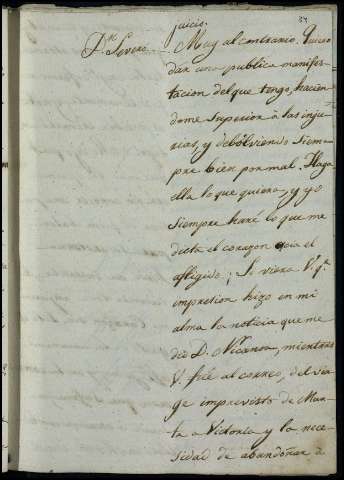 juicio.
84
D.n Severo. Muy al contrario. Quiero
dar una publica manifes-
tacion del que tengo, hacien-
dome superior à las inju-
rias, y debolviendo siem-
pre bien por mal. Haga
ella lo que quiera, y yo
siempre haré lo que me
dicta el corazon acia el
afligido; Si viera V. q.e
impresion hizo en mi
alma la noticia que me
dió D. Nicanor, mientras
V. fué al correo, del via-
ge imprevisto de Mar-
ta a Victoria y la nece-
sidad de abandonar à